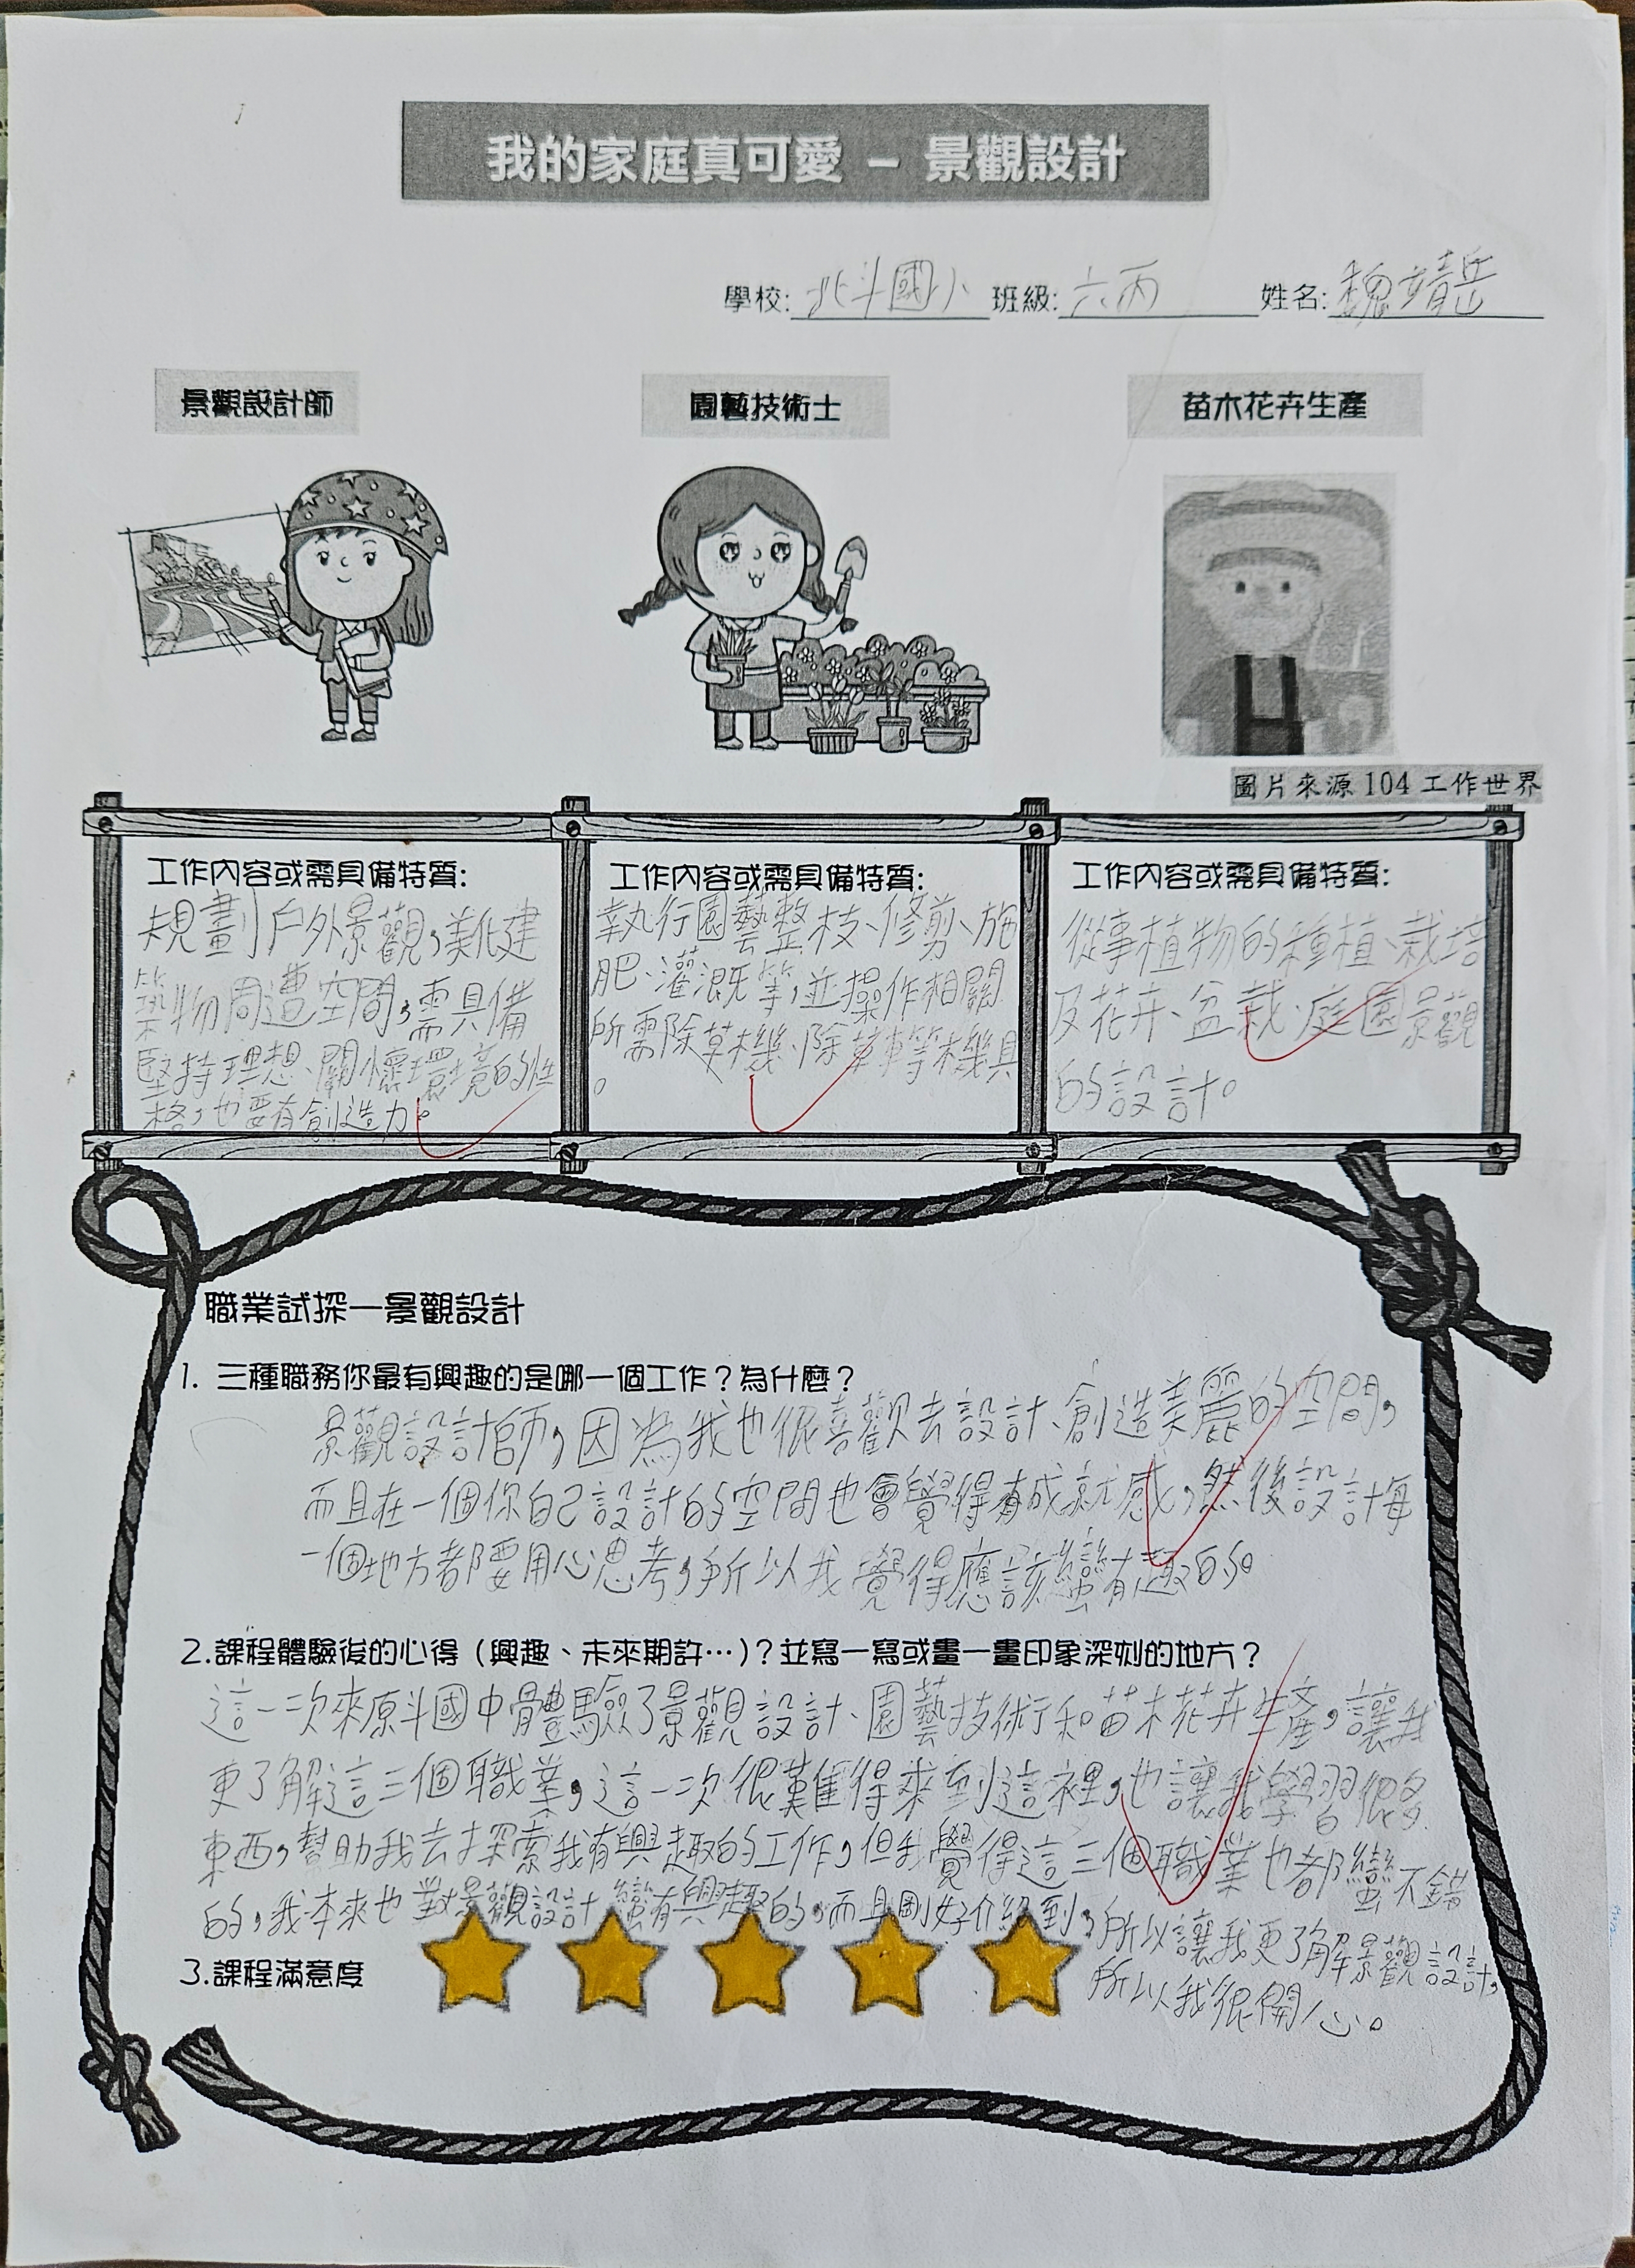 我的家庭真可愛 – 景觀設計
學校: 北斗國小 班級: 六丙 姓名: 魏靖岳
景觀設計師
園藝技術士
苗木花卉生產
圖片來源 104 工作世界
工作內容或需具備特質:
規劃戶外景觀,美化建
築物周遭空間,需具備
堅持理想、關懷環境的性
格,也要有創造力。
工作內容或需具備特質:
執行園藝整枝、修剪、施
肥、灌溉等,並操作相關
所需除草機、除草車等機具
。
工作內容或需具備特質:
從事植物的種植、栽培
及花卉、盆栽、庭園景觀
的設計。
職業試探—景觀設計
1. 三種職務你最有興趣的是哪一個工作?為什麼?
景觀設計師,因為我也很喜歡去設計、創造美麗的空間,
而且在一個你自己設計的空間也會覺得有成就感,然後設計每
一個地方都要用心思考,所以我覺得應該蠻有趣的。
2.課程體驗後的心得(興趣、未來期許…)?並寫一寫或畫一畫印象深刻的地方?
這一次來原斗國中體驗了景觀設計、園藝技術和苗木花卉生產,讓我
更了解這三個職業,這一次很難得來到這裡,也讓我學習很多
東西,幫助我去探索我有興趣的工作,但我覺得這三個職業也都蠻不錯
的,我本來也對景觀設計蠻有興趣的,而且剛好介紹到,所以讓我更了解景觀設計,
所以我很開心。
3.課程滿意度